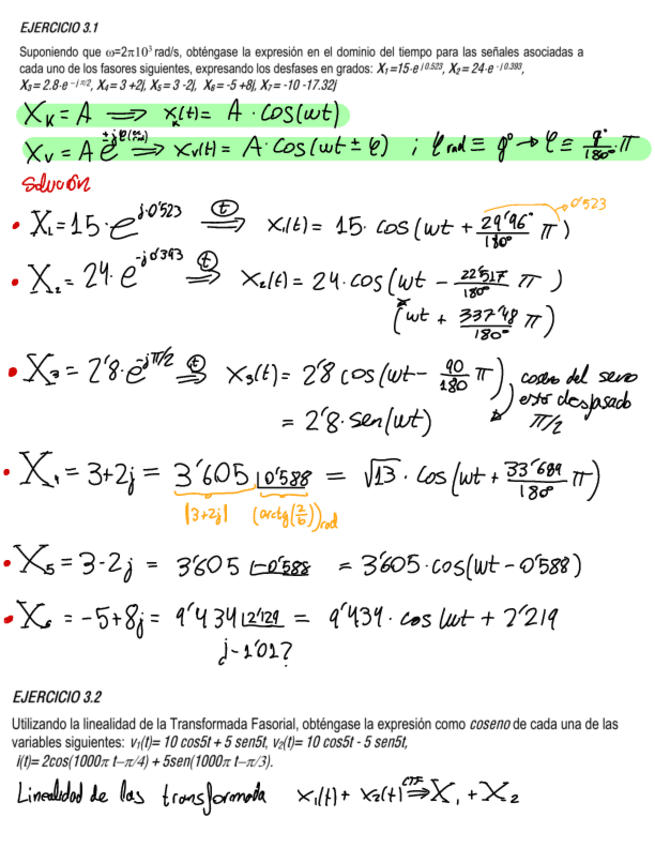 EJERCICIO 3.1
Suponiendo que ω=2π10³ rad/s, obténgase la expresión en el dominio del tiempo para las señales asociadas a
cada uno de los fasores siguientes, expresando los desfases en grados: X₁=15·e^j0.523, X₂= 24·e^-j0.393,
X₃= 2.8·e^-jπ/2, X₄= 3 +2j, X₅= 3 -2j, X₆= -5 +8j, X₇= -10 -17.32j
X_K = A ⟹ x_K(t) = A · cos(wt)
X_V = A e^±jφ(rad) ⟹ x_V(t) = A · cos(wt ± φ) ; φ rad ≡ q° → φ ≡ q°/180° · π
Solución
• X₁ = 15·e^j·0'523 ⟹ (t) x₁(t) = 15 · cos(wt + 29'96°/180° π) → 0'523
• X₂ = 24 · e^-j0'393 ⟹ (t) x₂(t) = 24 · cos(wt − 22'517/180° π)
(wt + 337'48/180° π)
• X₃ = 2'8·e^-jπ/2 ⟹ (t) x₃(t) = 2'8 cos(wt − 90/180 π) coseno del seno
= 2'8·sen(wt) está desfasado
π/2
• X₄ = 3+2j = 3'605 |0'588 = √13 · cos(wt + 33'689/180° π)
|3+2j| (arctg(2/6))rad
• X₅ = 3-2j = 3'605 |-0'588 = 3'605·cos(wt − 0'588)
• X₆ = -5+8j = 9'434 |2'129 = 9'434 · cos(wt + 2'219
¿-1'01?
EJERCICIO 3.2
Utilizando la linealidad de la Transformada Fasorial, obténgase la expresión como coseno de cada una de las
variables siguientes: v₁(t)= 10 cos5t + 5 sen5t, v₂(t)= 10 cos5t - 5 sen5t,
i(t)= 2cos(1000π t–π/4) + 5sen(1000π t–π/3).
Linealidad de las transformada x₁(t) + x₂(t) ⟹ X₁ + X₂